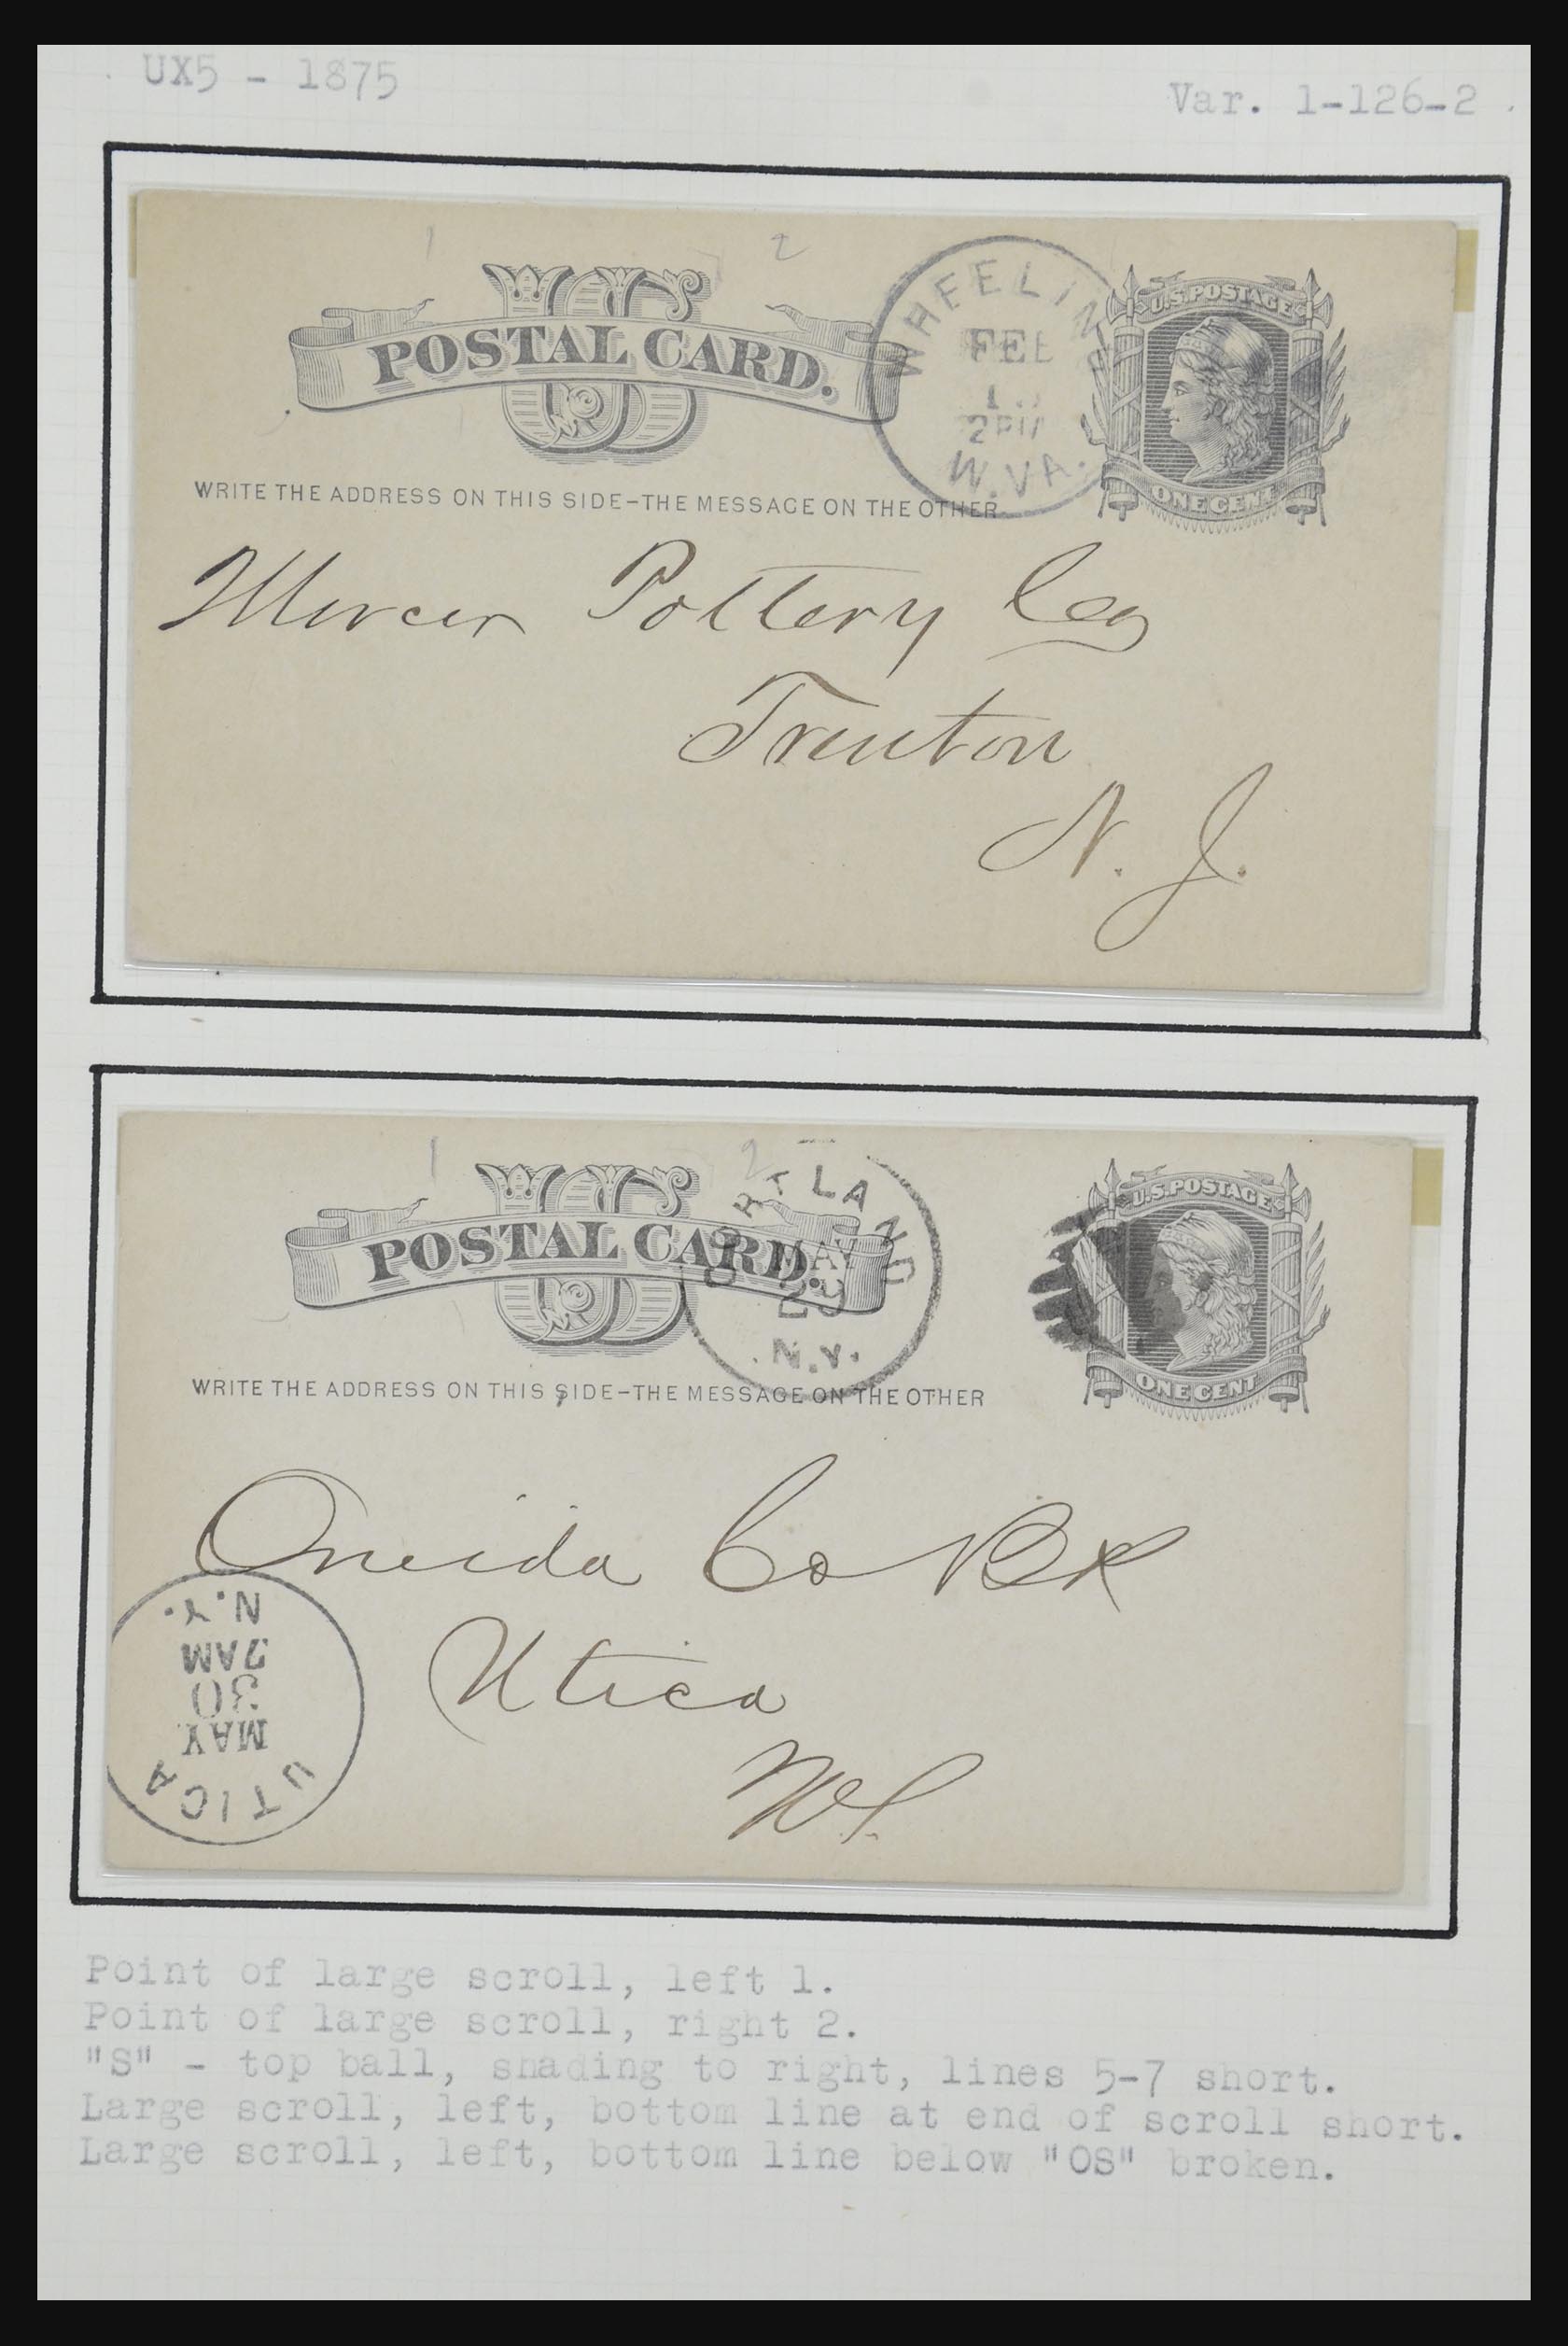 UX5 - 1875
Var. 1-126-2
1 2
US
POSTAL CARD.
WRITE THE ADDRESS ON THIS SIDE-THE MESSAGE ON THE OTHER
WHEELING
FEB
2PM
W.VA.
U.S. POSTAGE
ONE CENT
Mercer Pottery Co
Trenton
N. J.
1 2
US
POSTAL CARD.
WRITE THE ADDRESS ON THIS SIDE-THE MESSAGE ON THE OTHER
CORTLAND
MAY
29
N.Y.
U.S. POSTAGE
ONE CENT
Oneida Co Bk
Utica
NY.
UTICA
MAY
30
7AM
N.Y.
Point of large scroll, left 1.
Point of large scroll, right 2.
"S" - top ball, shading to right, lines 5-7 short.
Large scroll, left, bottom line at end of scroll short.
Large scroll, left, bottom line below "OS" broken.